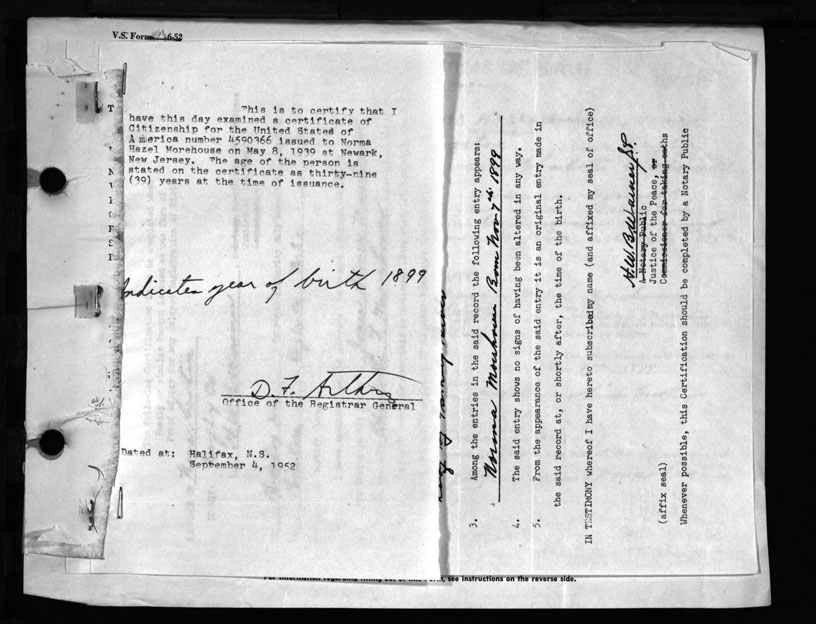 V.S. Form 6-52
This is to certify that I
have this day examined a certificate of
Citizenship for the United Stated of
America number 4590366 issued to Norma
Hazel Morehouse on May 8, 1939 at Newark,
New Jersey. The age of the person is
stated on the certificate as thirty-nine
(39) years at the time of issuance.
Indicates year of birth 1899
D. F.
Office of the Registrar General
Dated at: Halifax, N.S.
September 4, 1952
3. Among the entries in the said record the following entry appears:
Norma Morehouse Born Nov 7th 1899
4. The said entry shows no signs of having been altered in any way.
5. From the appearance of the said entry it is an original entry made in
the said record at, or shortly after, the time of the birth.
IN TESTIMONY whereof I have hereto subscribed my name (and affixed my seal of office)
A Notary Public
Justice of the Peace, or
Commissioner for taking oaths
(affix seal)
Whenever possible, this Certification should be completed by a Notary Public
For information regarding filling out of this Form, see instructions on the reverse side.